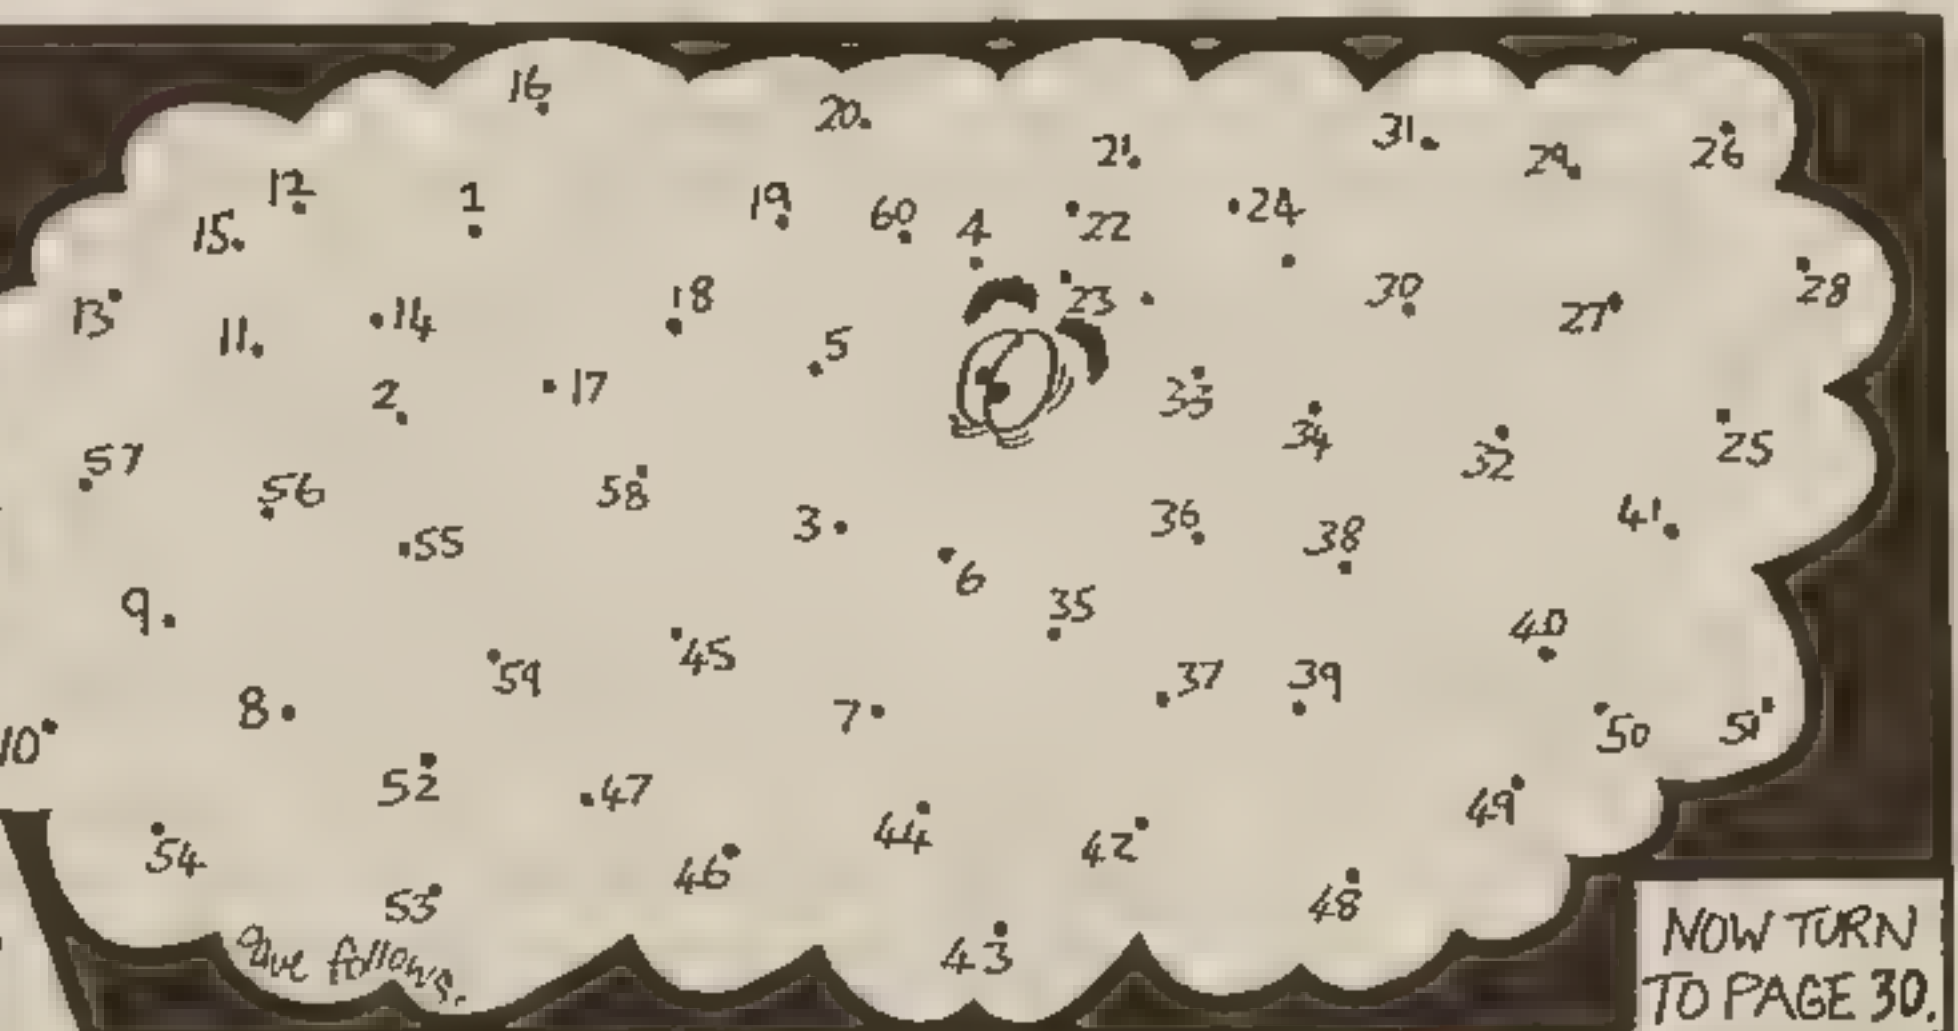 16
20.
21.
31.
29.
26
12
1
19
60
4
22
24
15.
13
11.
14
18
5
23
30
27
28
2
17
33
34
32
25
57
56
55
58
3
6
36
38
41
9
59
45
35
40
8
7
37
39
50
51
10
52
47
44
42
49
54
53
46
43
48
follows.
NOW TURN
TO PAGE 30.